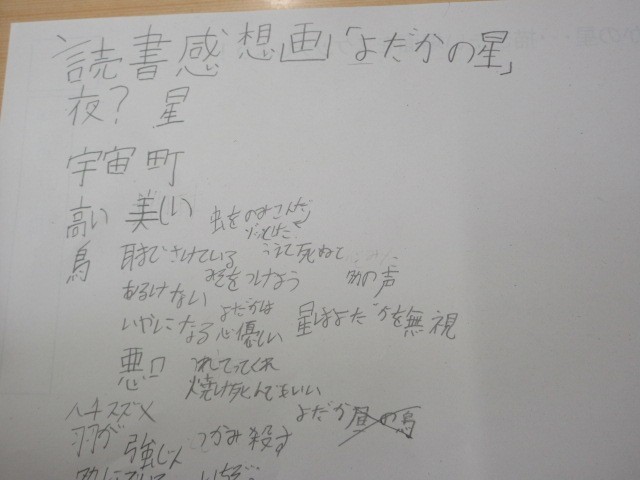 読書感想画「よだかの星」
夜? 星
宇宙 町
高い 美しい 虫をのみこんだ
ゾッとした
鳥 耳までさけている うえて死ねて
みそをつけよう 助の声
あるけない
よだかは
いやになる 心優しい 星はよだかを無視
悪口 つれてってくれ
焼け死んでもいい
ハチスズメ よだか 昼の鳥
羽が 強じん つかみ殺す